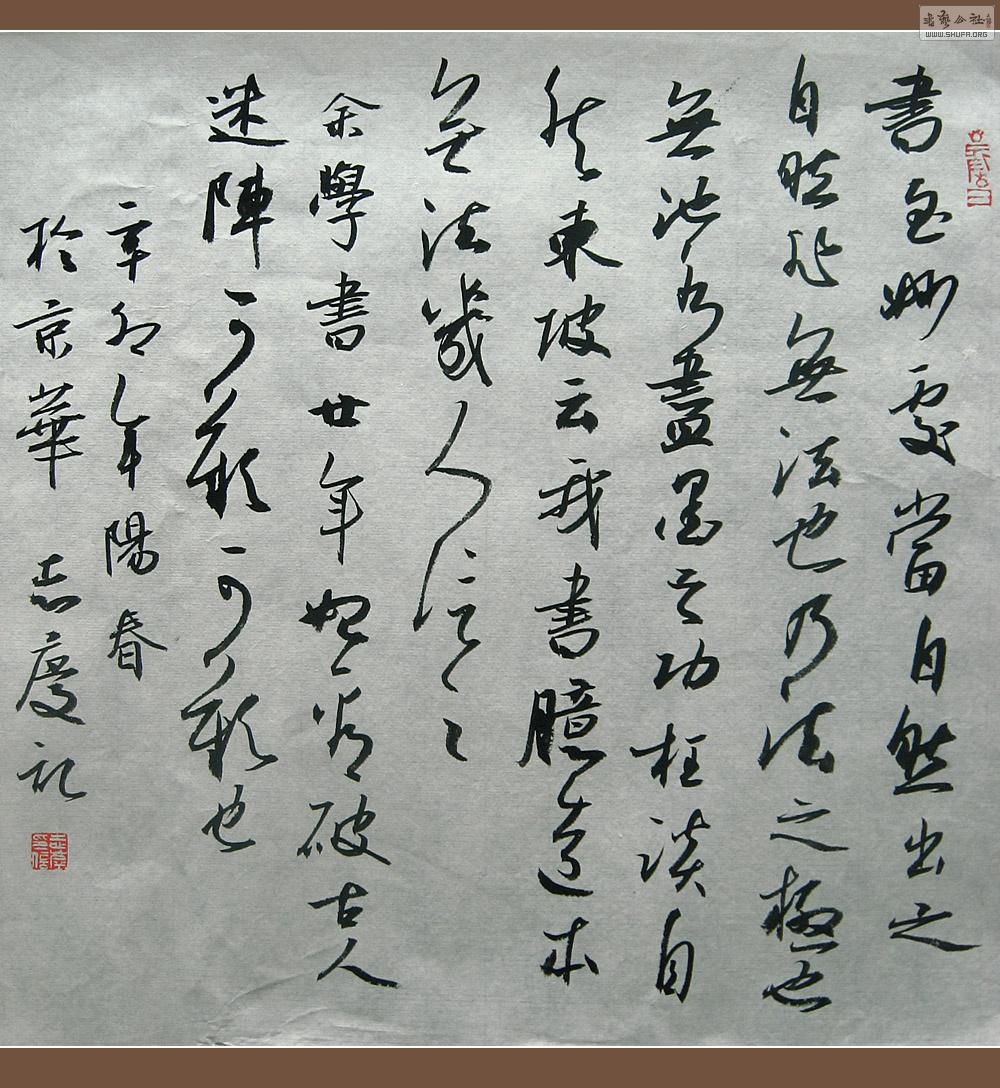 書至妙處當自然出之
自然非無法也乃法之極也
無池水盡墨之功枉談自
然東坡云我書臆造本
無法幾人信之
余學書廿年始看破古人
迷陣可歎可歎也
辛卯年陽春
於京華 志慶記
書藝公社
WWW.SHUFA.ORG